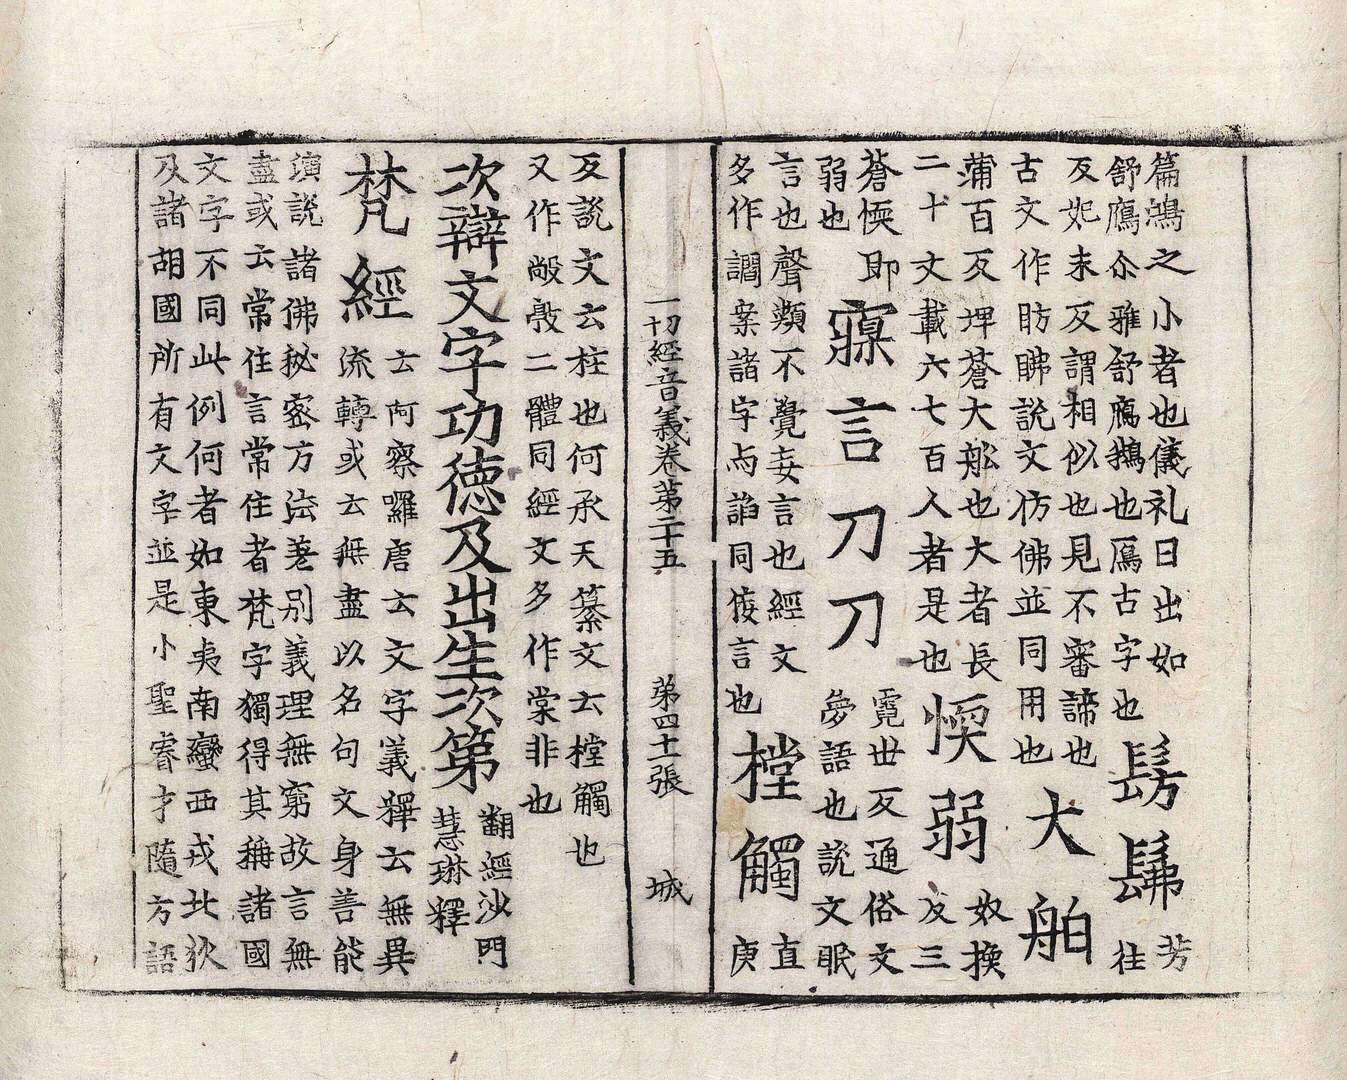 篇鴻之小者也儀礼曰出如
舒鴈尒雅舒鴈鵝也鴈古字也髣髴芳往
反妃末反謂相似也見不審諦也
古文作眆䀟說文仿佛並同用也大舶
蒲百反埤蒼大舩也大者長
二十丈載六七百人者是也愞弱奴換反三
蒼愞即
弱也寱言刀刀霓世反通俗文夢語也說文眠
言也聲類不覺妄言也經文
多作讇案諸字与諂同㑄言也棖觸直庚
一切經音義卷第二十五 第四十二張 城
反說文云柱也何承天纂文云棖觸也
又作敞㲂二體同經文多作棠非也
次辯文字功德及出生次第翻經沙門慧琳釋
梵經云阿察囉唐云文字義釋云無異
流轉或云無盡以名句文身善能
演說諸佛祕密方法差別義理無窮故言無
盡或云常住言常住者梵字獨得其稱諸國
文字不同此例何者如東夷南蠻西戎北狄
及諸胡國所有文字並是小聖睿才隨方語